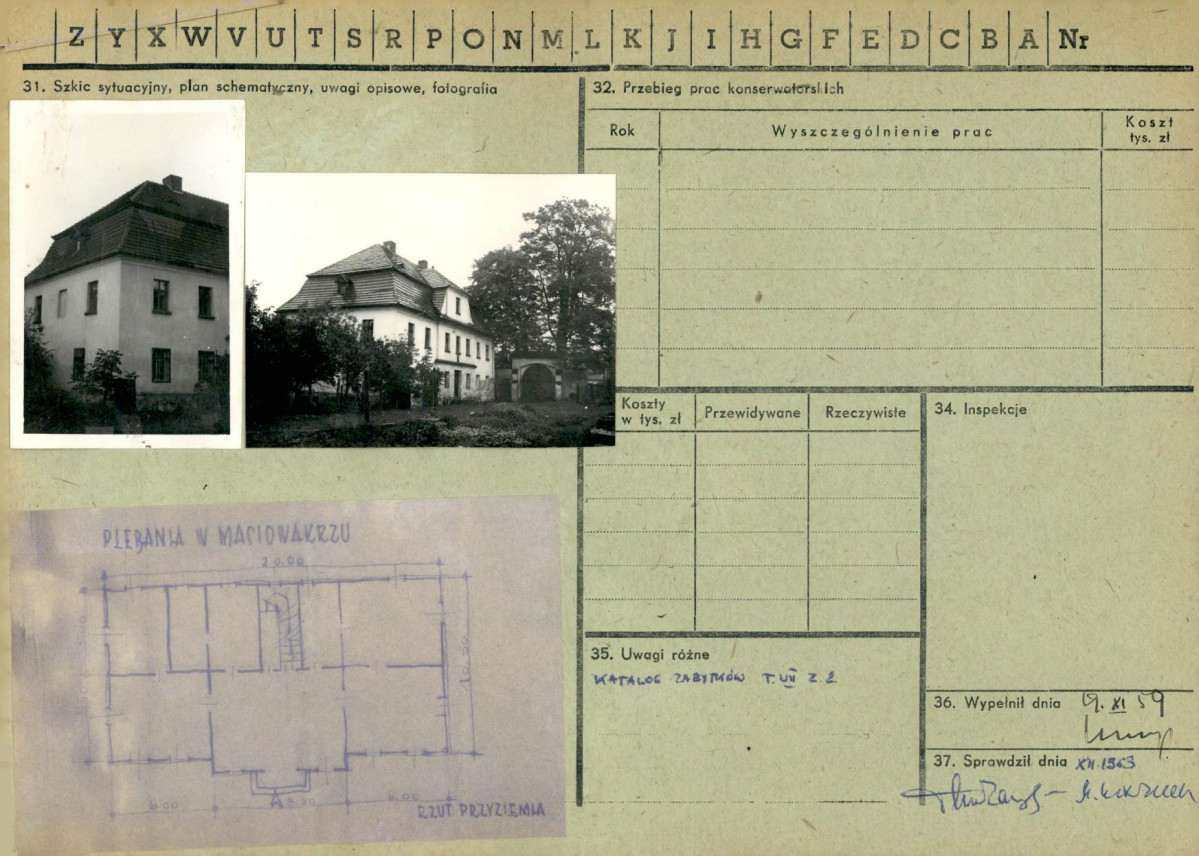 Z Y X W V U T S R P O N M L K J I H G F E D C B A Nr
31. Szkic sytuacyjny, plan schematyczny, uwagi opisowe, fotografia
32. Przebieg prac konserwatorskich
Rok
Wyszczególnienie prac
Koszt
tys. zł
Koszty
w tys. zł
Przewidywane
Rzeczywiste
34. Inspekcje
PLEBANIA W MACIOWAKRZU
20.00
6.00
6.00
RZUT PRZYZIEMIA
35. Uwagi różne
KATALOG ZABYTKÓW T. VII Z. 2
36. Wypełnił dnia 19. XI 59
37. Sprawdził dnia XII. 1963